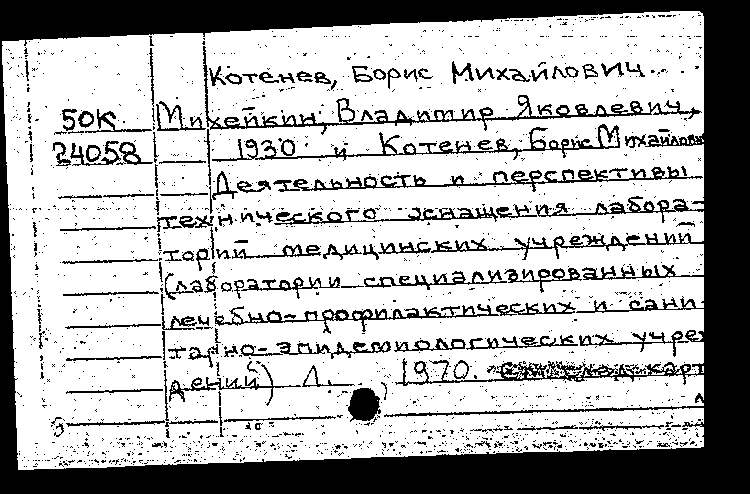 Котенев, Борис Михайлович.
50К Михейкин, Владимир Яковлевич,
24058 1930 и Котенев, Борис Михайлови
Деятельность и перспективы
технического оснащения лабора-
торий медицинских учреждений
(лаборатории специализированных
лечебно-профилактических и сани-
тарно-эпидемиологических учре
дений) Л., 1970. карт